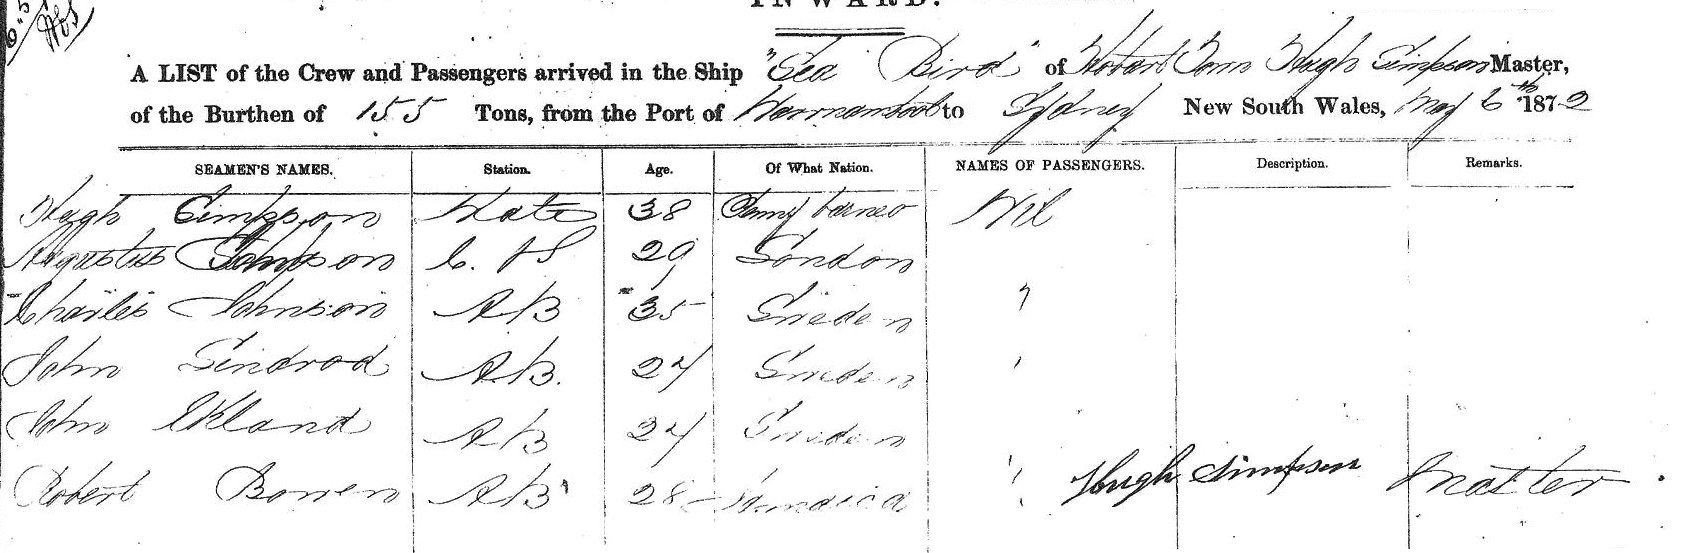 INWARD.
A LIST of the Crew and Passengers arrived in the Ship "Sea Bird" of Hobart Town Hugh Simpson Master,
of the Burthen of 155 Tons, from the Port of Warrnambool to Sydney New South Wales, May 6th 1872
SEAMEN'S NAMES. Station. Age. Of What Nation. NAMES OF PASSENGERS. Description. Remarks.
Hugh Simpson Mate 38 Nil
Augustus Simpson 29 London
Charles Johnson AB 35 Sweden "
John AB. 24 Sweden "
John Ekland AB 24 Sweden
Robert Bowen AB 28 Jamaica " Hugh Simpson Master